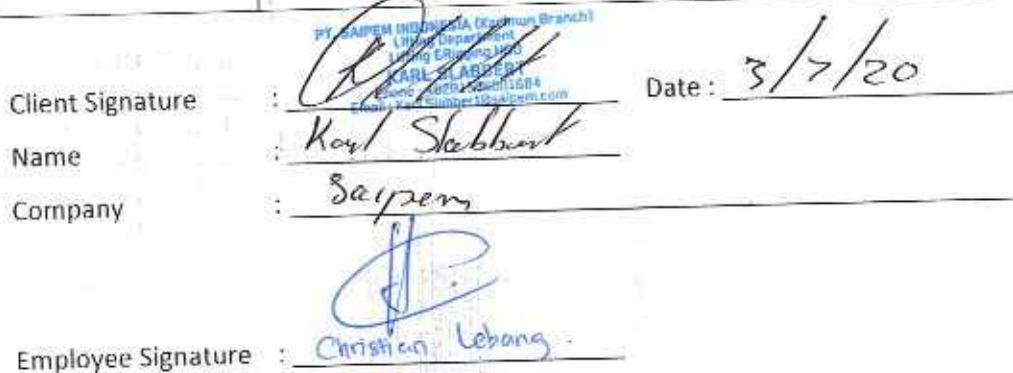 PT. SAIPEM INDONESIA (Karimun Branch)
Lifting Department
Lifting & Rigging
KARL SLABBERT
Client Signature : Date : 3/7/20
Name : Karl Slabbert
Company : Saipem
Employee Signature : Christian Lebang.